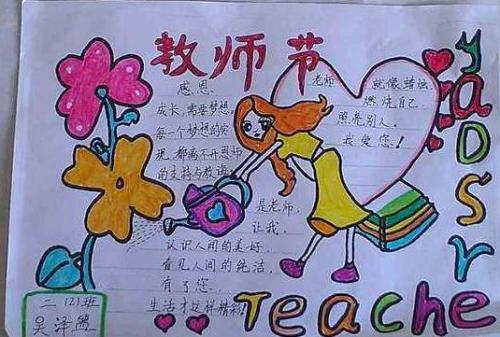 教师节
感恩
成长,需要梦想。
每一个梦想的实
现,都离不开恩师
的支持与教诲
是老师,
让我,
认识人间的美好,
看见人间的纯洁,
有了您,
生活才这样精彩!
老师 就像蜡烛
燃烧自己
照亮别人。
我爱您!
Teache
r's DAY
二(2)班
吴泽